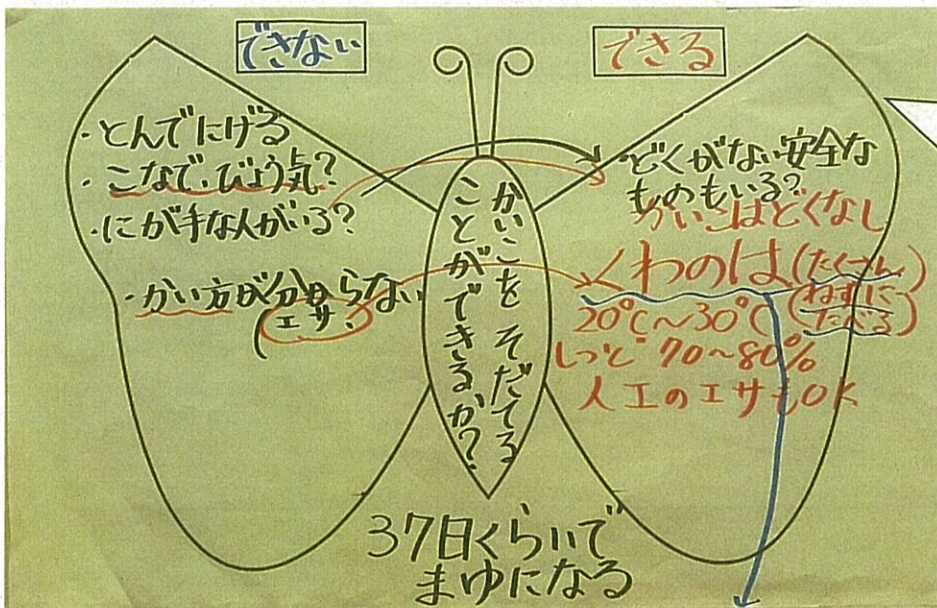 できない
・とんでにげる
・こなで、びょう気?
・にが手な人がいる?
・かい方が分からない
エサ?
かいこを そだてる
ことができるか?
できる
どくがない安全な
ものもいる?
かいこはどくなし
くわのは(たくさん)
(ねずに
たべる)
20℃〜30℃
しつど 70〜80%
人工のエサもOK
37日くらいで
まゆになる